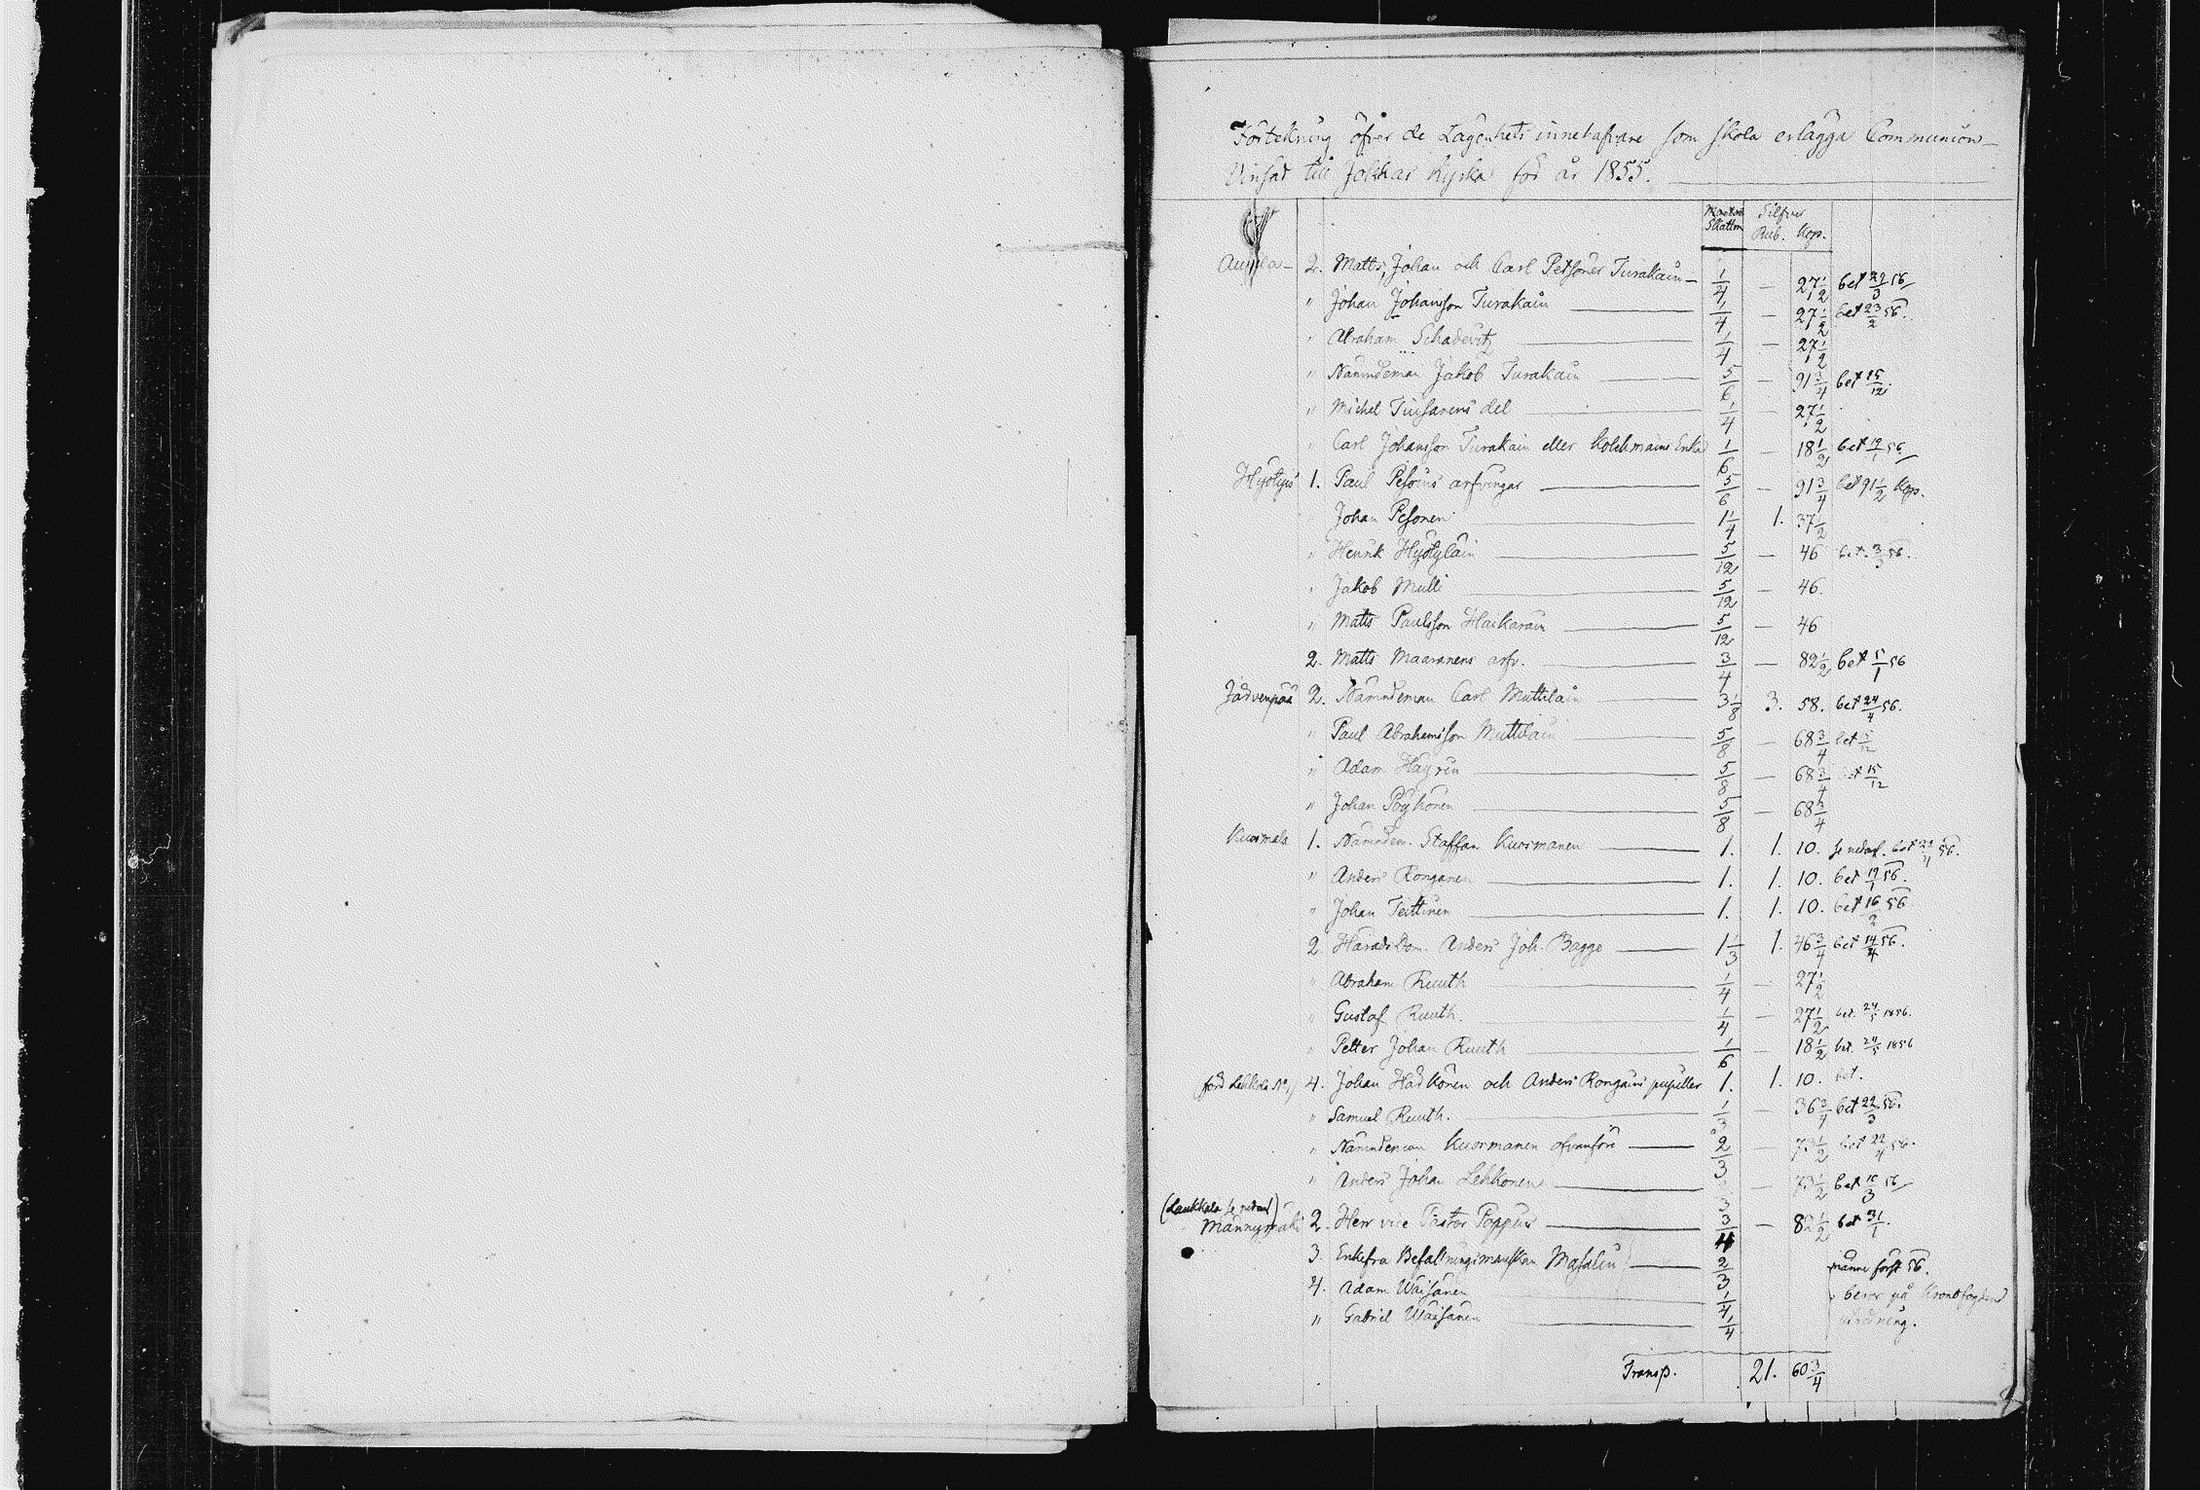 Förtekning öfver de Lägenhets innehafvare som skola erlägga Communion-
Vinsäd till Jokkas kyrka för år 1855.
Mantal Skattm Silfver Rub. Kop.
2. Matts, Johan och Carl Petssöner Turakain 1/4 — 27 1/2 bet 29/3 56
" Johan Johansson Turakain 1/4 — 27 1/2 bet 23/2 56.
" Abraham Schadevitz 1/4 — 27 1/2
" Nämndeman Jakob Turakain 5/6 — 91 3/4 bet 15/12.
" Michel Tiusanens del 1/4 — 27 1/2
" Carl Johansson Turakain eller Kolehmains Enka 1/6 — 18 1/2 bet 19/1 56
Hyötyis 1. Paul Pesoins arfvingar 5/6 — 91 3/4 bet 91 1/2 kop.
" Johan Pesonen 1 1/4 1. 37 1/2
" Henrik Hyötyläin 5/12 — 46 bet. 3/3 56.
" Jakob Mulli 5/12 — 46.
" Matts Paulsson Haikarain 5/12 — 46
2. Matts Maaranens arfv. 3/4 — 82 1/2 bet 5/1 56
Järvenpää 2. Nämndeman Carl Muttilain 3 1/8 3. 58. bet 24/4 56.
" Paul Abrahamsson Muttilain 5/8 — 68 3/4 bet 15/12
" Adam Häyrin 5/8 — 68 3/4 bet 15/12
" Johan Pöyhönen 5/8 — 68 3/4
Kuormala 1. Nämndem. Staffan Kuormanen 1. 1. 10. se nedanf. bet 22/4 56.
" Anders Ronganen 1. 1. 10. bet 19/1 56.
" Johan Teittinen 1. 1. 10. bet 16/2 56
2. Härads Dom. Anders Joh. Bagge 1 1/3 1. 46 3/4 bet 14/4 56.
" Abraham Ruuth 1/4 — 27 1/2
" Gustaf Ruuth. 1/4 — 27 1/2 bet. 24/5 1856.
" Petter Johan Ruuth 1/6 — 18 1/2 bet. 24/5 1856
4. Johan Härkönen och Anders Rongains pupiller 1. 1. 10. bet.
" Samuel Ruuth. 1/3 — 36 3/4 bet 22/3 56.
" Nämndeman Kuormanen ofvanföre 2/3 — 73 1/2 bet 22/4 56.
" Anders Johan Lehkonen — 73 1/2 bet 10/3 56
(Laukkala se nedanf)
Männynmäki 2. Herr vice Pastor Poppius 3/4 — 82 1/2 bet 31/1.
3. Enkefru Befallningsmanskan Masalin 2/3 männe först 56.
4. Adam Wäisänen 1/4 " beror på Kronofogdens
" Gabriel Wäisänen 1/4 utredning.
Transp. 21. 60 3/4